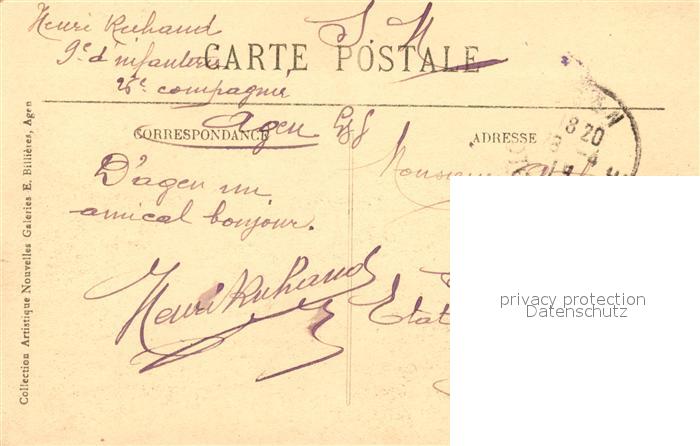 Henri Ruhaud
9e d'infanterie
CARTE POSTALE
S M
compagnie
Agen
CORRESPONDANCE
ADRESSE
18 20
D'agen un
amical bonjour.
Monsieur
Henri Ruhaud
Etat
privacy protection
Datenschutz
Collection Artistique Nouvelles Galeries E. Billières, Agen